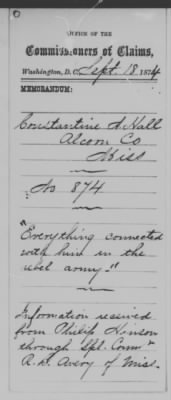 OFFICE OF THE
Commissioners of Claims,
Washington, D.C. Sept. 18, 1874
MEMORANDUM:
Constantine A. Hall
Alcorn Co
Miss
No 874
"Everything connected
with him in the
rebel army."
Information received
from Philip Hinson
through Spl. Comr
R. D. Avery of Miss.